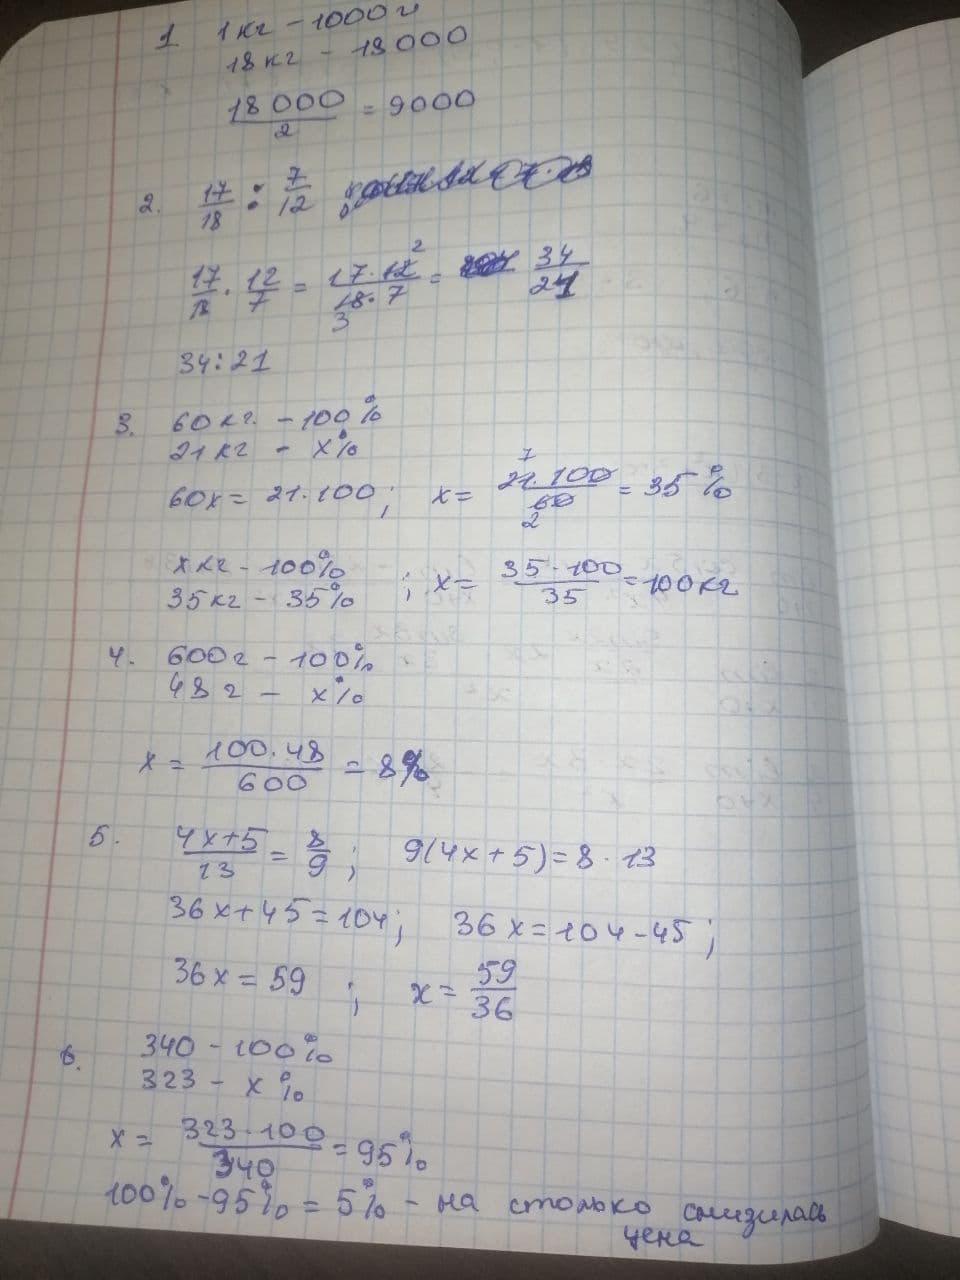 1 1кг - 1000г
18кг - 18000
18000/2 = 9000
2. 17/18 : 7/12
17/18 · 12/7 = 17·12 2/18·7 3 = 34/21
34:21
3. 60кг. - 100%
21кг - x%
60x = 21·100; x = 21·100 7/60 2 = 35%
xкг - 100%
35кг - 35% ; x = 35·100/35 = 100кг
4. 600г - 100%
48г - x%
x = 100·48/600 = 8%
5. 4x+5/13 = 8/9; 9(4x+5)=8·13
36x+45=104; 36x=104-45;
36x=59 ; x=59/36
6. 340 - 100%
323 - x%
x = 323·100/340 = 95%
100% - 95% = 5% - на столько снизилась
цена